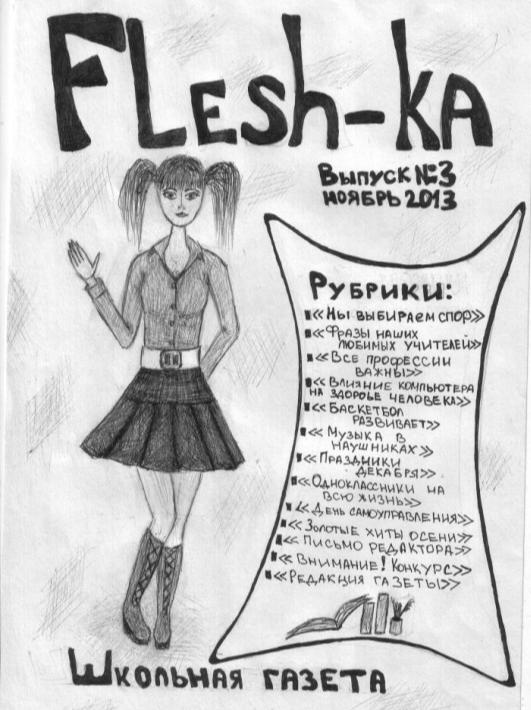 FLesh-ka
Выпуск №3
Ноябрь 2013
Рубрики:
«Мы выбираем спор»
«Фразы наших
любимых учителей»
«Все профессии
важны»
«Влияние компьютера
на здоровье человека»
«Баскетбол
развивает»
«Музыка в
наушниках»
«Праздники
декабря»
«Одноклассники на
всю жизнь»
«День самоуправления»
«Золотые хиты осени»
«Письмо редактора»
«Внимание! Конкурс»
«Редакция газеты»
Школьная газета